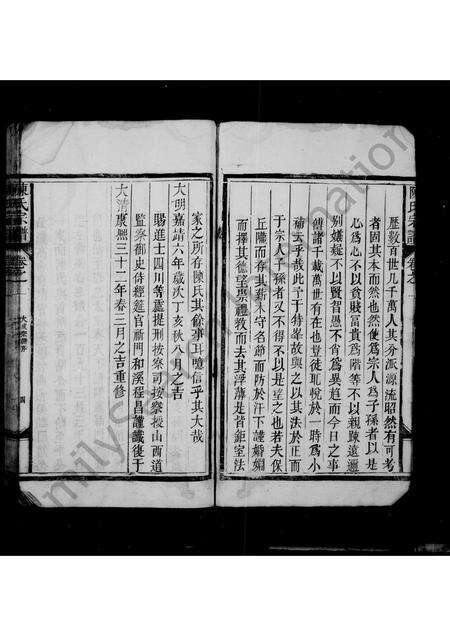 陳氏宗譜
卷之一
歷數百世九千萬人其分派源流昭然有可考
者固其本而然也然使為宗人為子孫者以是
心為心不以貧賤富貴為階等不以親疎遠邇
別嫌疑不以賢智愚不肖為異趨而今日之事
傳諸千載萬世有在也豈徒耻悅於一時為小
補云乎哉此予于特峯故與之以其法於正而
于宗人子孫者又不得不以是望之也若夫保
丘隴而存其薪木守名節而防於汗下謹婚姻
而擇其德望崇禮教而去其浮薄是皆鉅室法
家之所存陳氏其餘事也噫信乎其大哉
大明嘉靖六年歲次丁亥秋八月之吉
賜進士四川等處提刑按察司按察授山西道
監察御史侍經筵官祁門和溪程昌謹識後于
大清康熙三十二年春三月之吉重修
陳氏宗譜
卷之一
四
milysearch